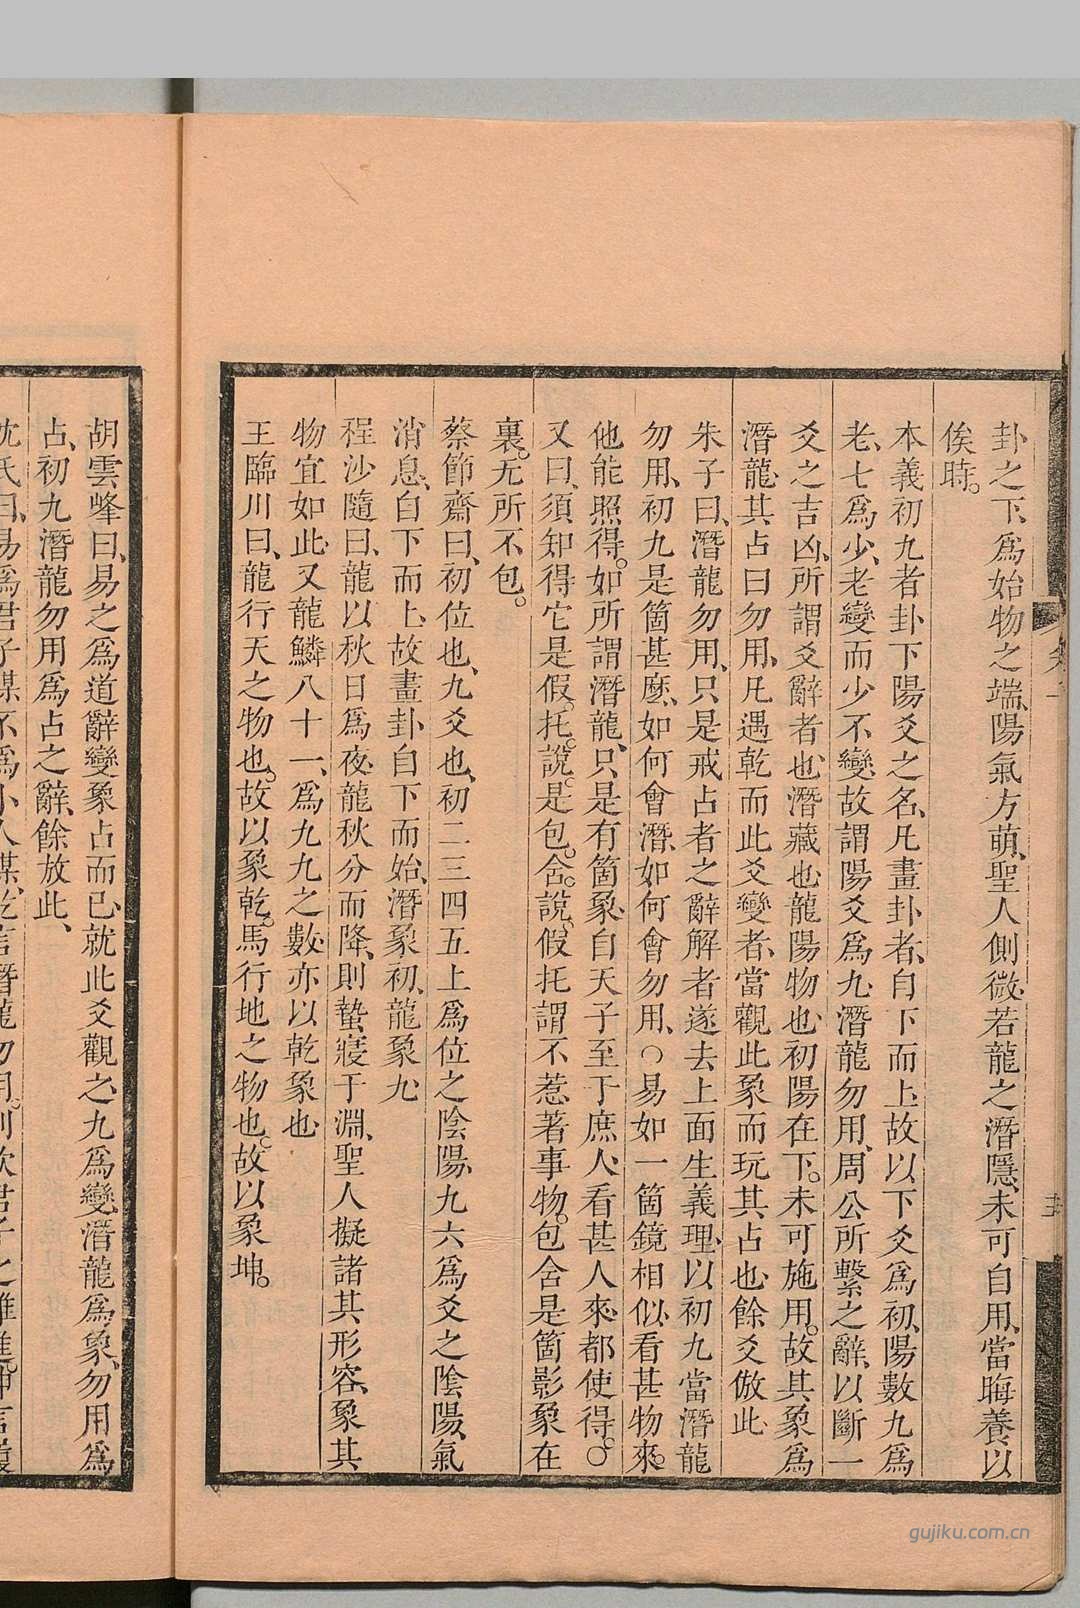 卦之下、爲始物之端、陽氣方萌、聖人側微、若龍之潛隱、未可自用、當晦養以
俟時。
本義初九者卦下陽爻之名、凡畫卦者、自下而上、故以下爻爲初、陽數九爲
老、七爲少、老變而少不變、故謂陽爻爲九、潛龍勿用、周公所繫之辭、以斷一
爻之吉凶、所謂爻辭者也、潛藏也、龍陽物也、初陽在下。未可施用。故其象爲
潛龍、其占曰勿用、凡遇乾而此爻變者、當觀此象而玩其占也、餘爻倣此、
朱子曰、潛龍勿用、只是戒占者之辭、解者遂去上面生義理、以初九當潛龍
勿用、初九是箇甚麼、如何會潛、如何會勿用、○易如一箇鏡相似、看甚物來。
他能照得。如所謂潛龍、只是有箇象、自天子至于庶人、看甚人來、都使得。○
又曰、須知得它是假。托。說。是包。含。說。假托謂不惹著事物。包含是箇影象在
裏。无所不包。
蔡節齋曰、初位也、九爻也、初二三四五上爲位之陰陽、九六爲爻之陰陽、氣
消息、自下而上、故畫卦自下而始、潛象初、龍象九、
程沙隨曰、龍以秋日爲夜、龍秋分而降、則蟄寢于淵、聖人擬諸其形容、象其
物宜如此、又龍鱗八十一、爲九九之數、亦以乾象也、
王臨川曰、龍行天之物也。故以象乾。馬行地之物也。故以象坤。
胡雲峰曰、易之爲道、辭變象占而已、就此爻觀之、九爲變、潛龍爲象、勿用爲
占、初九潛龍勿用爲占之辭、餘放此、
gujiku.com.cn